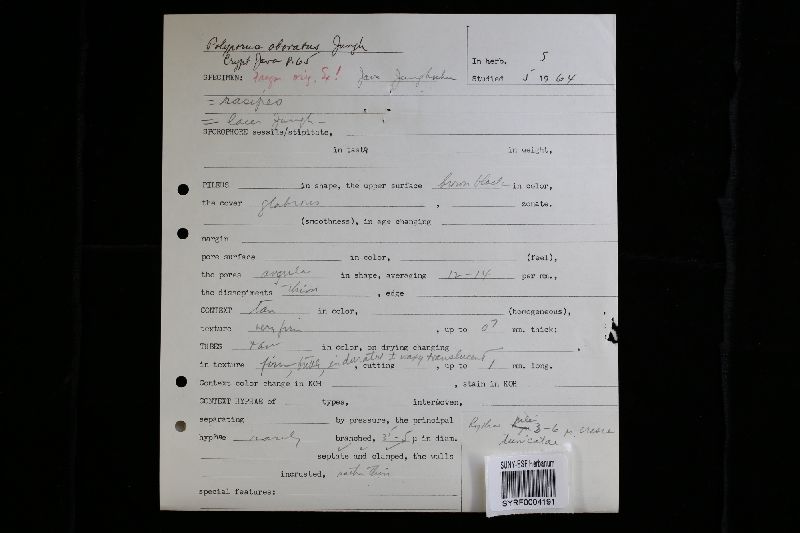 Polyporus obovatus Jungh
Crypt Java p. 65
In herb. 5
SPECIMEN: Fragm orig. Java Junghuhn
Studied 5 1964
= rasipes
= lacer Jungh
SPOROPHORE sessile/stipitate,
in taste in weight,
PILEUS in shape, the upper surface brown black in color,
the cover glabrous , zonate.
(smoothness), in age changing
margin
pore surface in color, (feel),
the pores angular in shape, averaging 12-14 per mm.,
the dissepiments thin , edge
CONTEXT tan in color, (homogeneous),
texture very firm , up to 0? mm. thick;
TUBES tan in color, on drying changing .
in texture firm, indurated ± waxy translucent , cutting , up to 1 mm. long.
Context color change in KOH , stain in KOH
CONTEXT HYPHAE OF types, interwoven,
separating by pressure, the principal
hyphae rarely branched, 3-5 µ in diam.
Hyphae pilei 3-6 µ, crasse tunicatae
septate and clamped, the walls
incrusted, rather thin
special features:
SUNY-ESF Herbarium
SYRF0004191